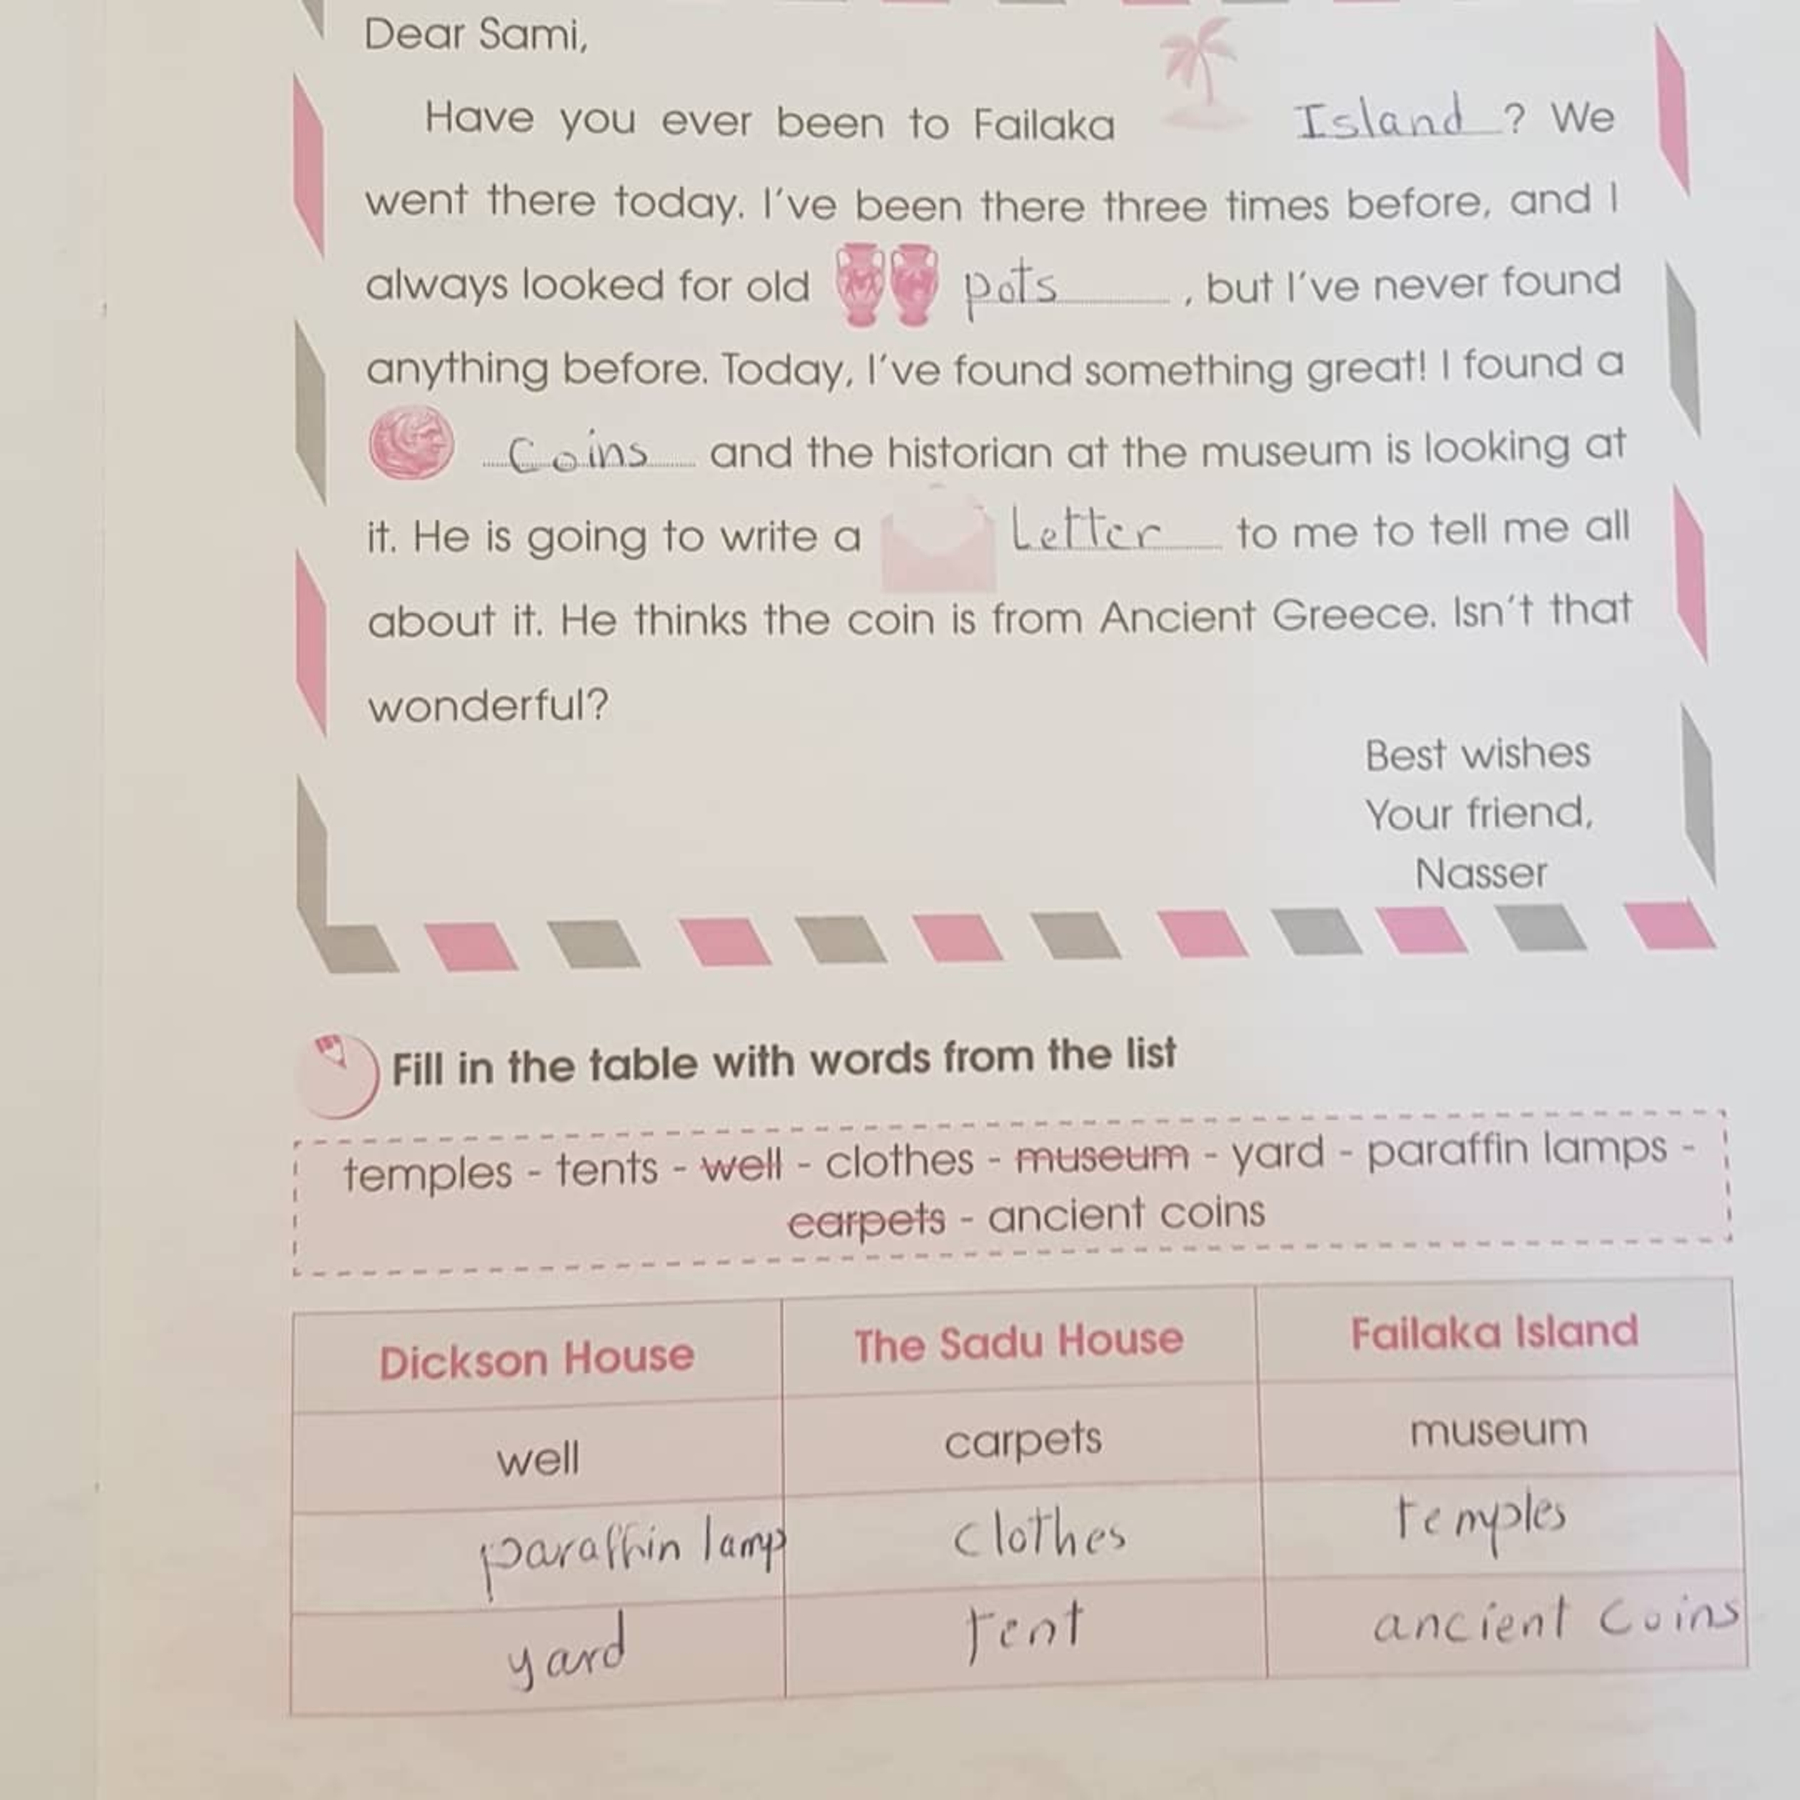 Dear Sami,
Have you ever been to Failaka Island ? We
went there today. I've been there three times before, and I
always looked for old pots , but I've never found
anything before. Today, I've found something great! I found a
Coins and the historian at the museum is looking at
it. He is going to write a Letter to me to tell me all
about it. He thinks the coin is from Ancient Greece. Isn't that
wonderful?
Best wishes
Your friend,
Nasser
Fill in the table with words from the list
temples - tents - well - clothes - museum - yard - paraffin lamps -
carpets - ancient coins
Dickson House The Sadu House Failaka Island
well carpets museum
paraffin lamp clothes temples
yard tent ancient coins